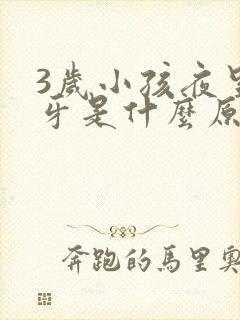 3歲小孩夜
牙是什麼原
奔跑的馬里奧